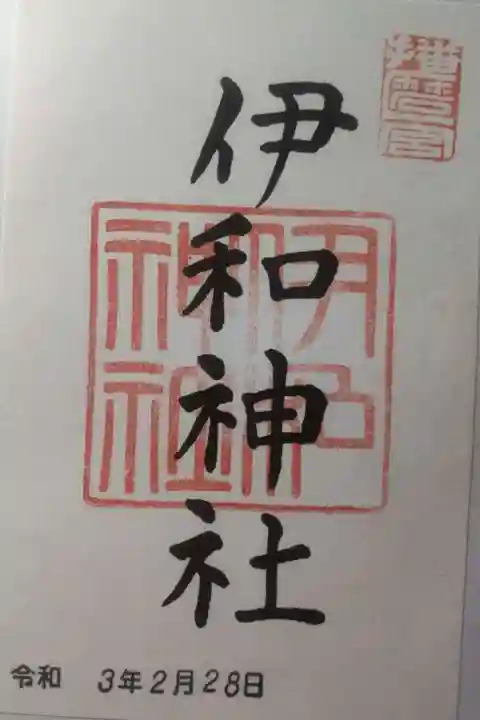 播磨一宮
伊和神社
伊和神社
令和 3年2月28日